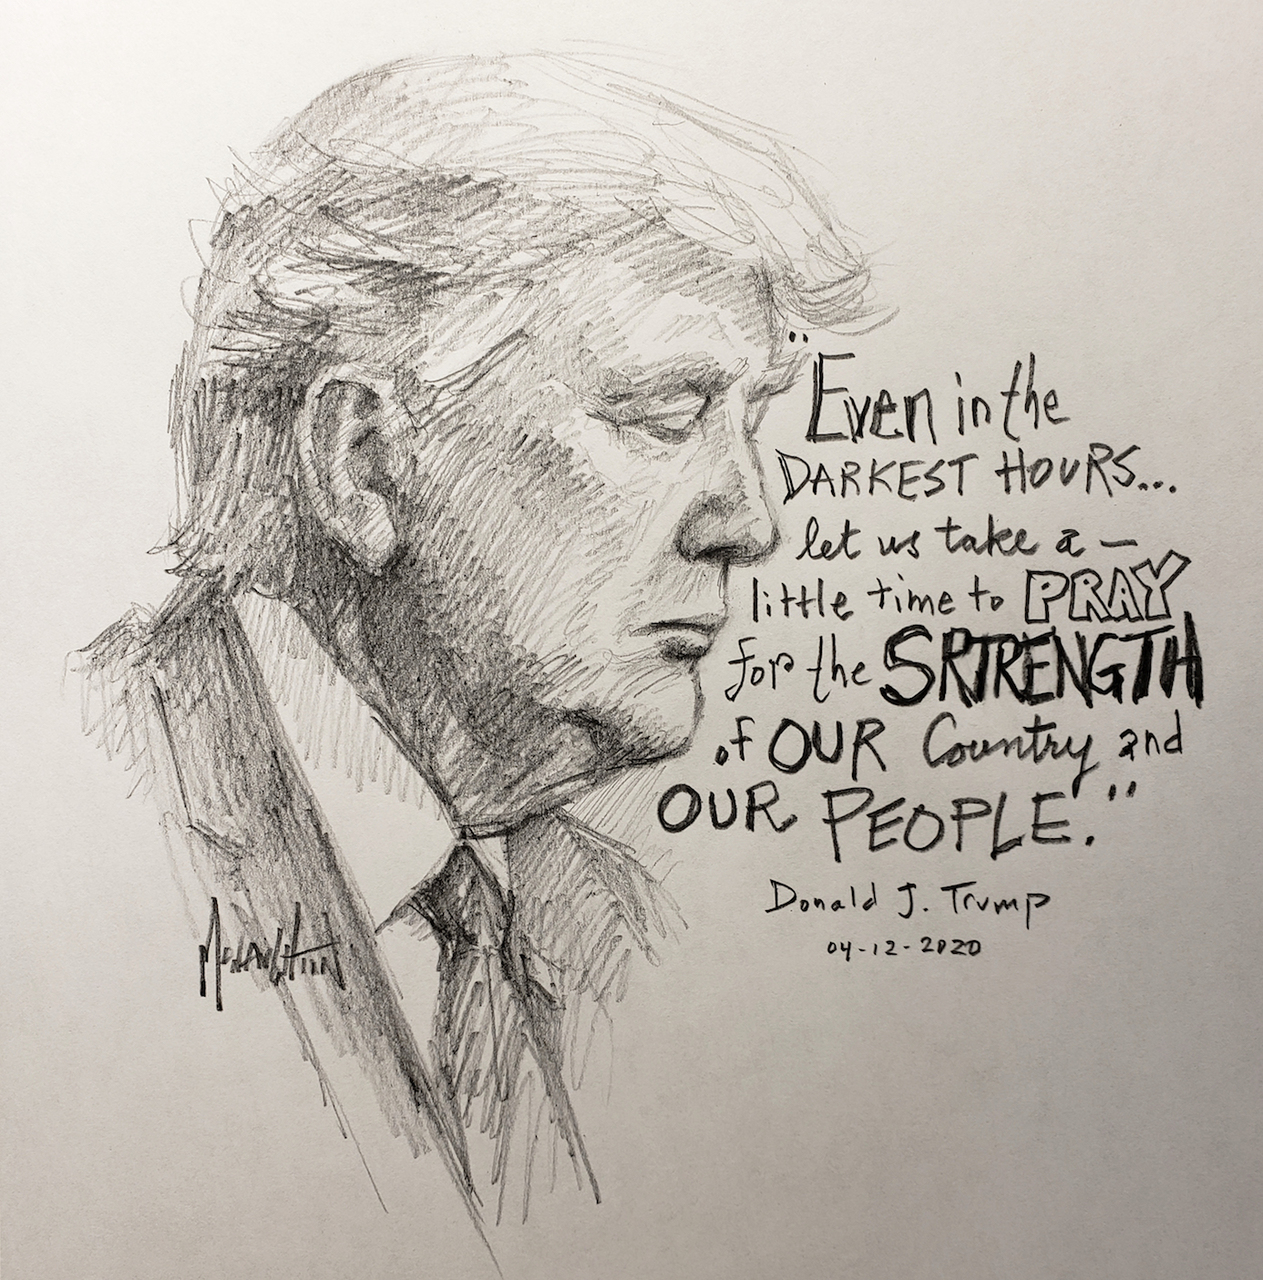 "Even in the
DARKEST HOURS...
let us take a –
little time to PRAY
for the SRTRENGTH
of OUR Country and
OUR PEOPLE."
Donald J. Trump
04-12-2020